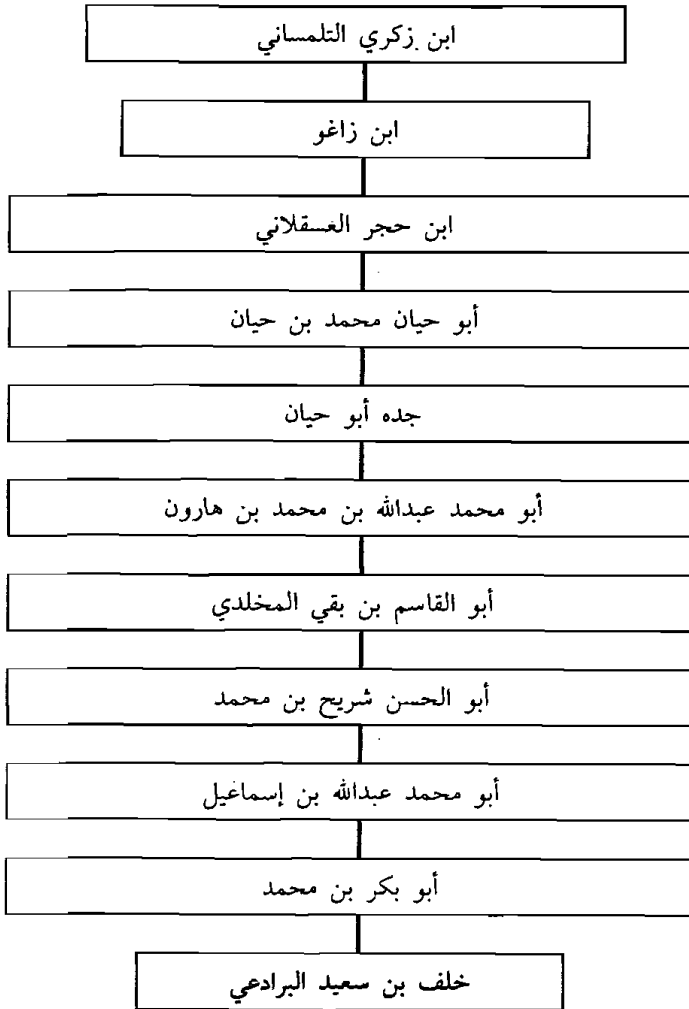 ابن زكري التلمساني
ابن زاغو
ابن حجر العسقلاني
أبو حيان محمد بن حيان
جده أبو حيان
أبو محمد عبدالله بن محمد بن هارون
أبو القاسم بن بقي المخلدي
أبو الحسن شريح بن محمد
أبو محمد عبدالله بن إسماعيل
أبو بكر بن محمد
خلف بن سعيد البرادعي